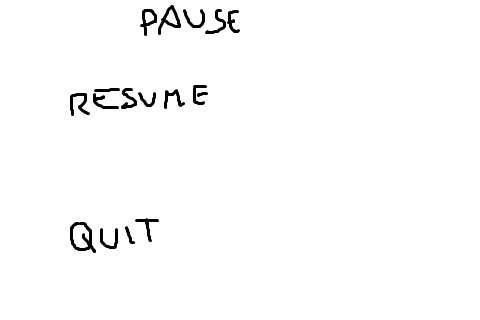 PAUSE
RESUME
QUIT